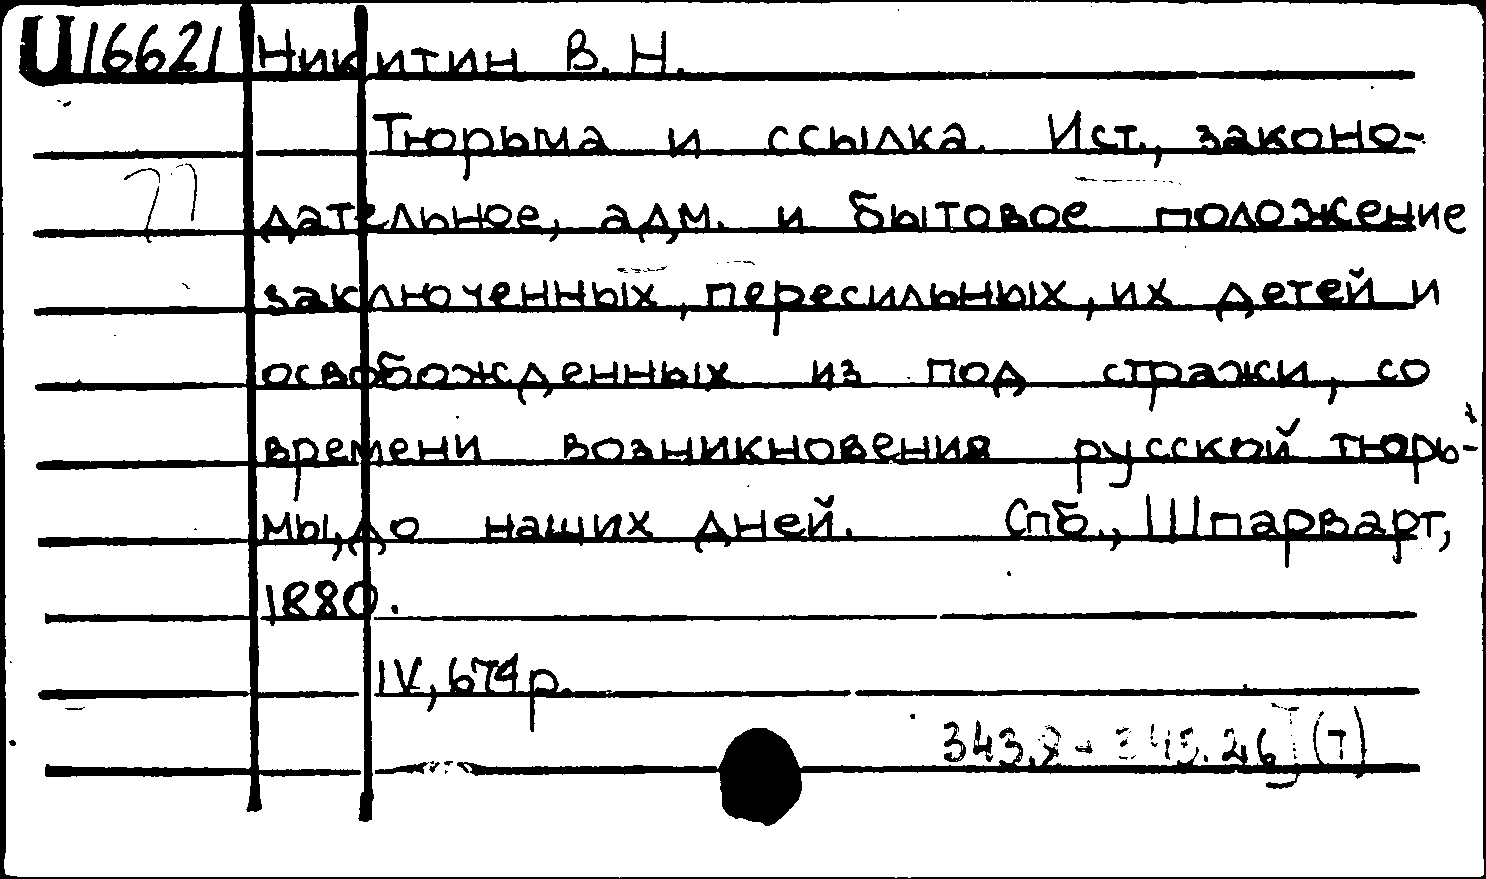 U16621 Никитин В. Н.
Тюрьма и ссылка. Ист., законо-
дательное, адм. и бытовое положение
77
заключенных, пересильных, их детей и
освобожденных из под стражи, со
времени возникновения русской тюрь-
мы, до наших дней. Спб., Шпарварт,
1880.
IV, 674 р.